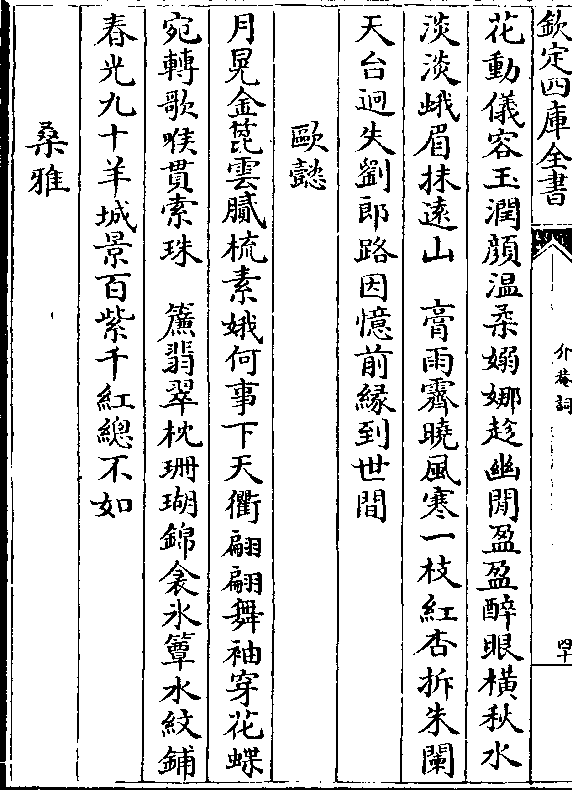 欽定四庫全書
介菴詞
四十
花動儀容玉潤顔温柔嫋娜趁幽閒盈盈醉眼橫秋水
淡淡蛾眉抹遠山　膏雨霽曉風寒一枝紅杏拆朱闌
天台迥失劉郎路因憶前緣到世間
歐懿
月晃金箆雲膩梳素娥何事下天衢翩翩舞袖穿花蝶
宛轉歌喉貫索珠　簾翡翠枕珊瑚錦衾氷簟水紋鋪
春光九十羊城景百紫千紅總不如
桑雅